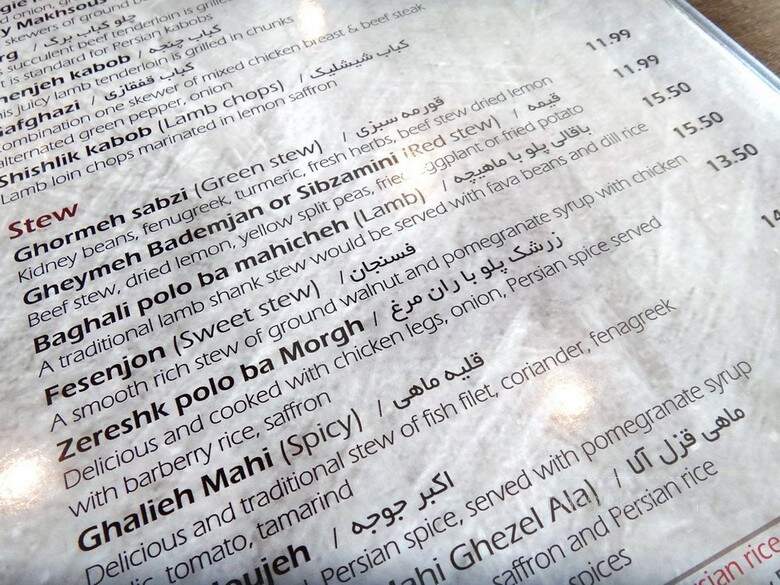 y Makhsous
skewers of ground
succulent beef tenderloin is grille
t is standard for Persian kabobs
henjeh kabob / کباب چنجه
his juicy lamb tenderloin is grilled in chunks
afghazi / کباب قفقازی
ombination one skewer of mixed chicken breast & beef steak
alternated green pepper, onion
Shishlik kabob (Lamb chops) / کباب شیشلیک
Lamb loin chops marinated in lemon saffron
Stew
Ghormeh sabzi (Green stew) / قورمه سبزی 11.99
Kidney beans, fenugreek, turmeric, fresh herbs, beef stew dried lemon
Gheymeh Bademjan or Sibzamini (Red stew) / قیمه 11.99
Beef stew, dried lemon, yellow split peas, fried eggplant or fried potato
Baghali polo ba mahicheh (Lamb) / باقالی پلو با ماهیچه 15.50
A traditional lamb shank stew would be served with fava beans and dill rice
Fesenjon (Sweet stew) / فسنجان 15.50
A smooth rich stew of ground walnut and pomegranate syrup with chicken
Zereshk polo ba Morgh / زرشک پلو با ران مرغ 13.50
Delicious and cooked with chicken legs, onion, Persian spice served
with barberry rice, saffron
Ghalieh Mahi (Spicy) / قلیه ماهی
Delicious and traditional stew of fish filet, coriander, fenagreek
tomato, tamarind
oujeh / اکبر جوجه
Persian spice, served with pomegranate syrup
ahi Ghezel Ala) / ماهی قزل آلا
saffron and Persian rice
spices
ian rice